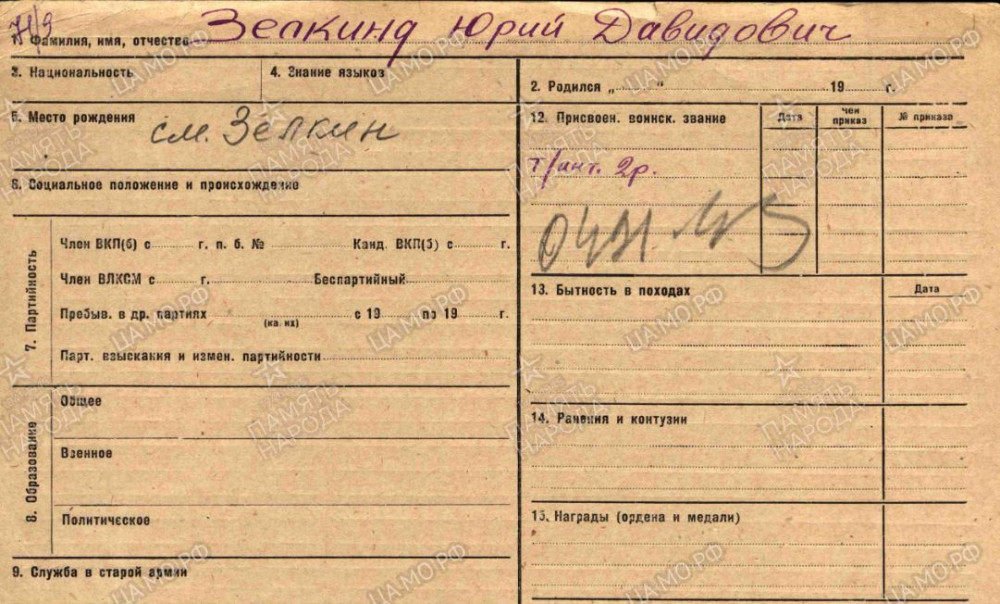 1. Фамилия, имя, отчество Зелкинд Юрий Давидович
3. Национальность
4. Знание языков
2. Родился „ “ 19 г.
5. Место рождения см. Зелкин
12. Присвоен. воинск. звание
Дата
чей приказ
№ приказа
т/инт. 2р.
6. Социальное положение и происхождение
7. Партийность
Член ВКП(б) с г. п. б. № Канд. ВКП(б) с г.
Член ВЛКСМ с г. Беспартийный
Пребыв. в др. партиях с 19 по 19 г.
(ка. их)
Парт. взыскания и измен. партийности
13. Бытность в походах
Дата
8. Образование
Общее
Военное
Политическое
14. Ранения и контузии
15. Награды (ордена и медали)
9. Служба в старой армии
ПАМЯТЬ НАРОДА
ЦАМО.РФ